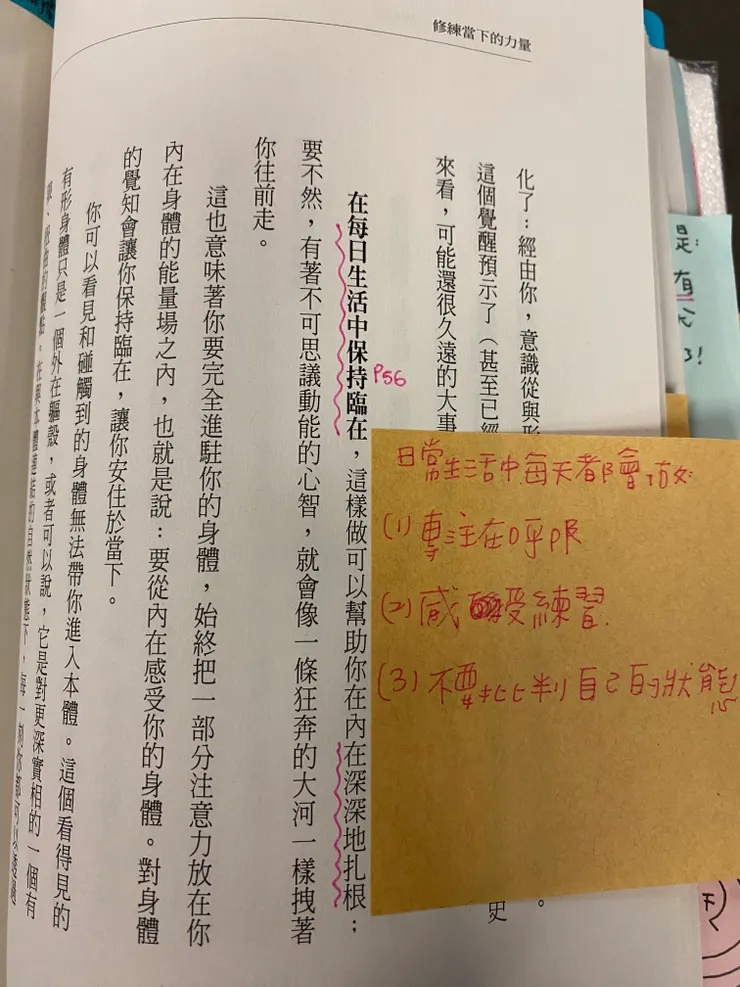 修練當下的力量
化了：經由你，意識從與形
這個覺醒預示了（甚至已經
來看，可能還很久遠的大事
史
。
在每日生活中保持臨在，這樣做可以幫助你在內在深深地扎根；
要不然，有著不可思議動能的心智，就會像一條狂奔的大河一樣拽著
你往前走。
這也意味著你要完全進駐你的身體，始終把一部分注意力放在你
內在身體的能量場之內，也就是說：要從內在感受你的身體。對身體
的覺知會讓你保持臨在，讓你安住於當下。
你可以看見和碰觸到的身體無法帶你進入本體。這個看得見的
有形身體只是一個外在軀殼，或者可以說，它是對更深實相的一個有
P56
日常生活中每天都會做
(1) 專注在呼吸
(2) 感受練習
(3) 不要批判自己的狀態
是：
有